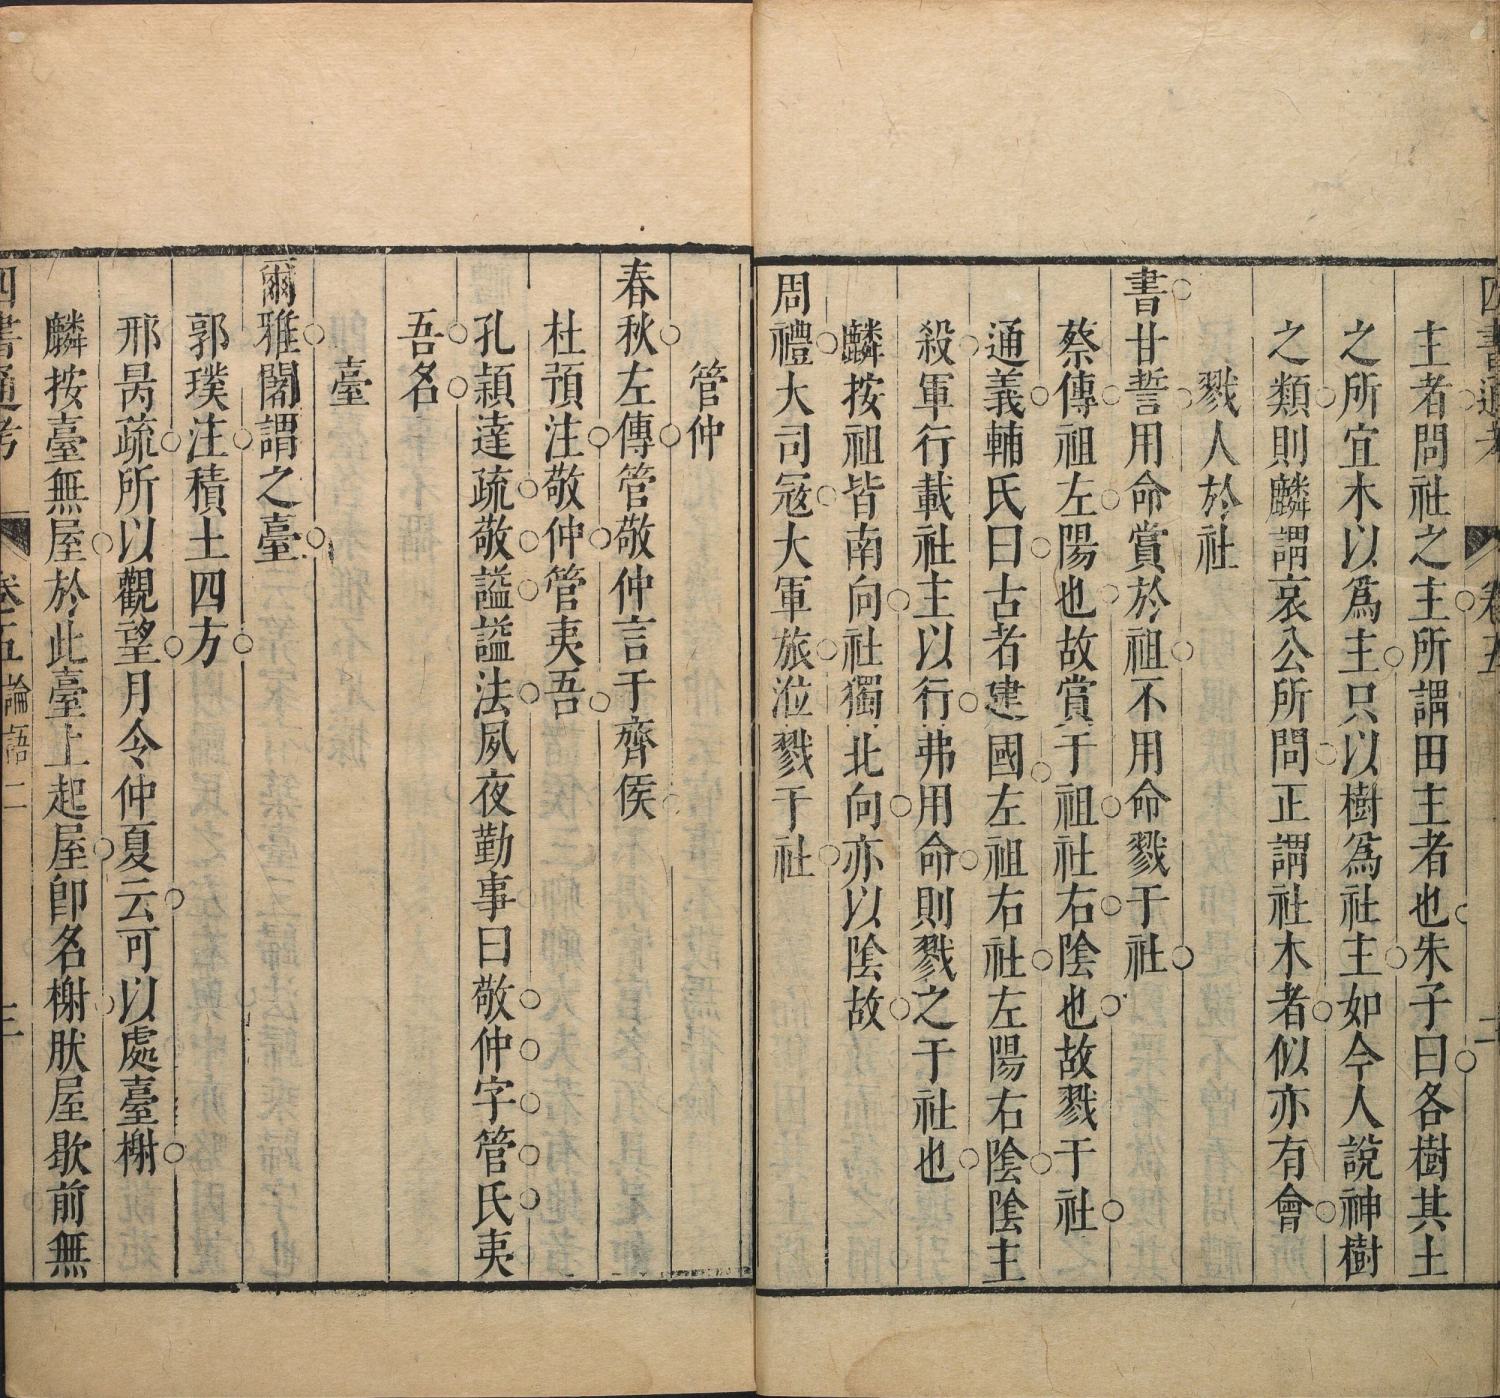 四書通考
卷五
主者問社之主所謂田主者也朱子曰各樹其土
之所宜木以爲主只以樹爲社主如今人說神樹
之類則麟謂哀公所問正謂社木者似亦有會
戮人於社
書甘誓用命賞於祖不用命戮于社
蔡傳祖左陽也故賞于祖社右陰也故戮于社
通義輔氏曰古者建國左祖右社左陽右陰陰主
殺軍行載社主以行弗用命則戮之于社也
麟按祖皆南向社獨北向亦以陰故
周禮大司冦大軍旅涖戮于社
管仲
春秋左傳管敬仲言于齊侯
杜預注敬仲管夷吾
孔穎達疏敬謚謚法夙夜勤事曰敬仲字管氏夷
吾名
臺
爾雅闍謂之臺
郭璞注積土四方
邢昺疏所以觀望月令仲夏云可以處臺榭
麟按臺無屋於此臺上起屋卽名榭肰屋歇前無
四書通考 卷五 論語二 三